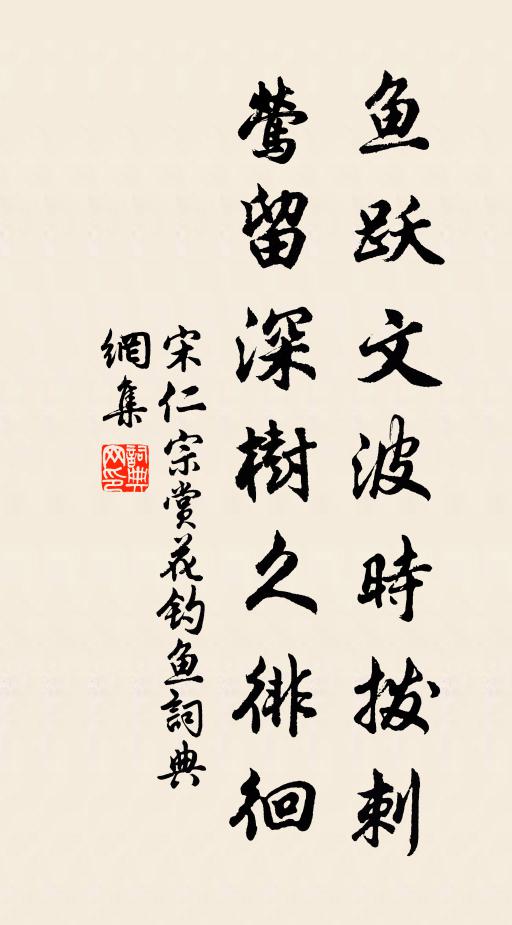 鱼跃文波时拨刺
莺留深樹久徘徊
宋仁宗赏花钓鱼詞典
網集
詞典网印